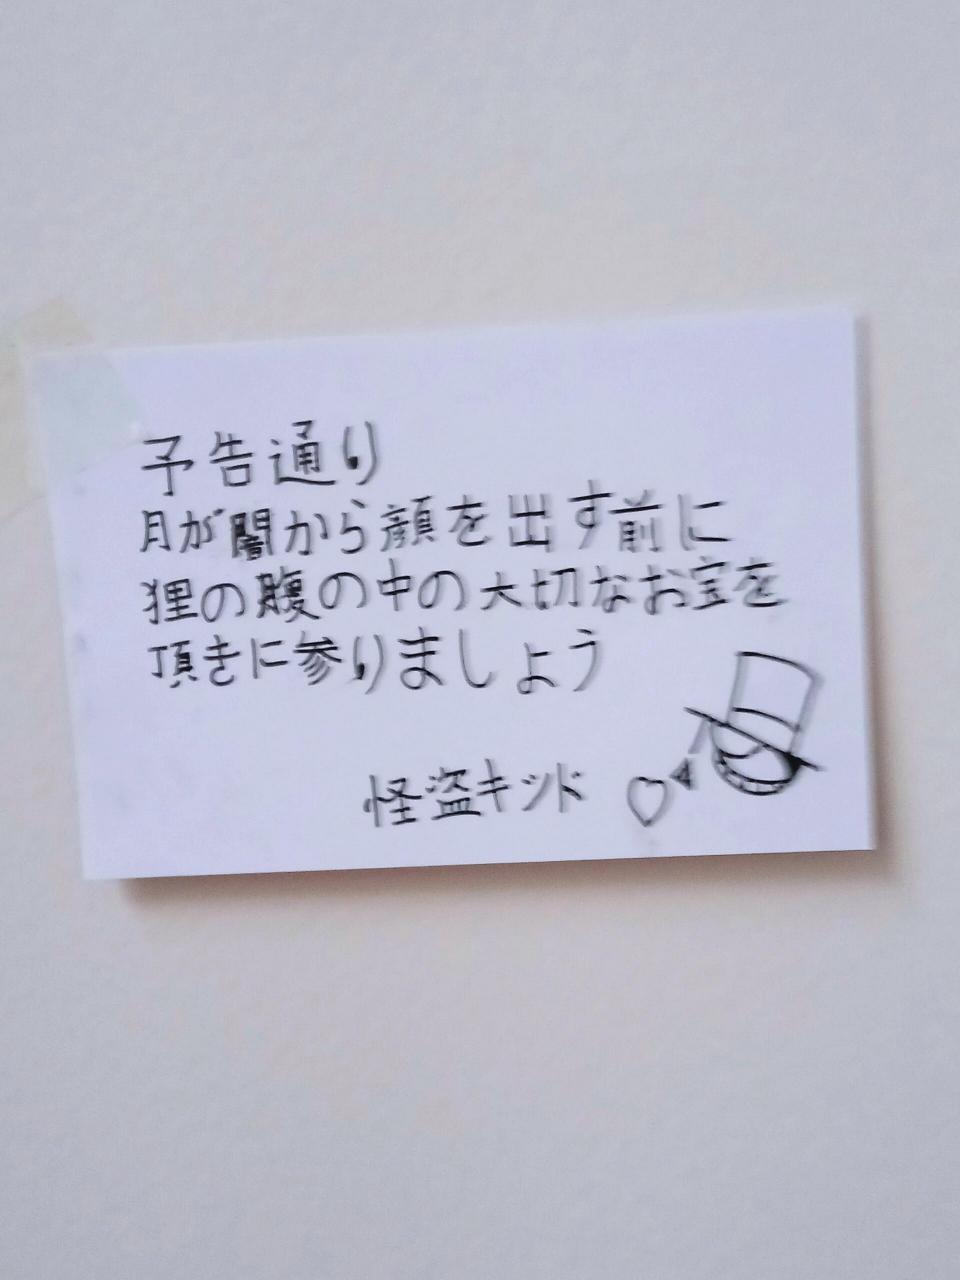 予告通り
月が闇から顔を出す前に
狸の腹の中の大切なお宝を
頂きに参りましょう
怪盗キッド